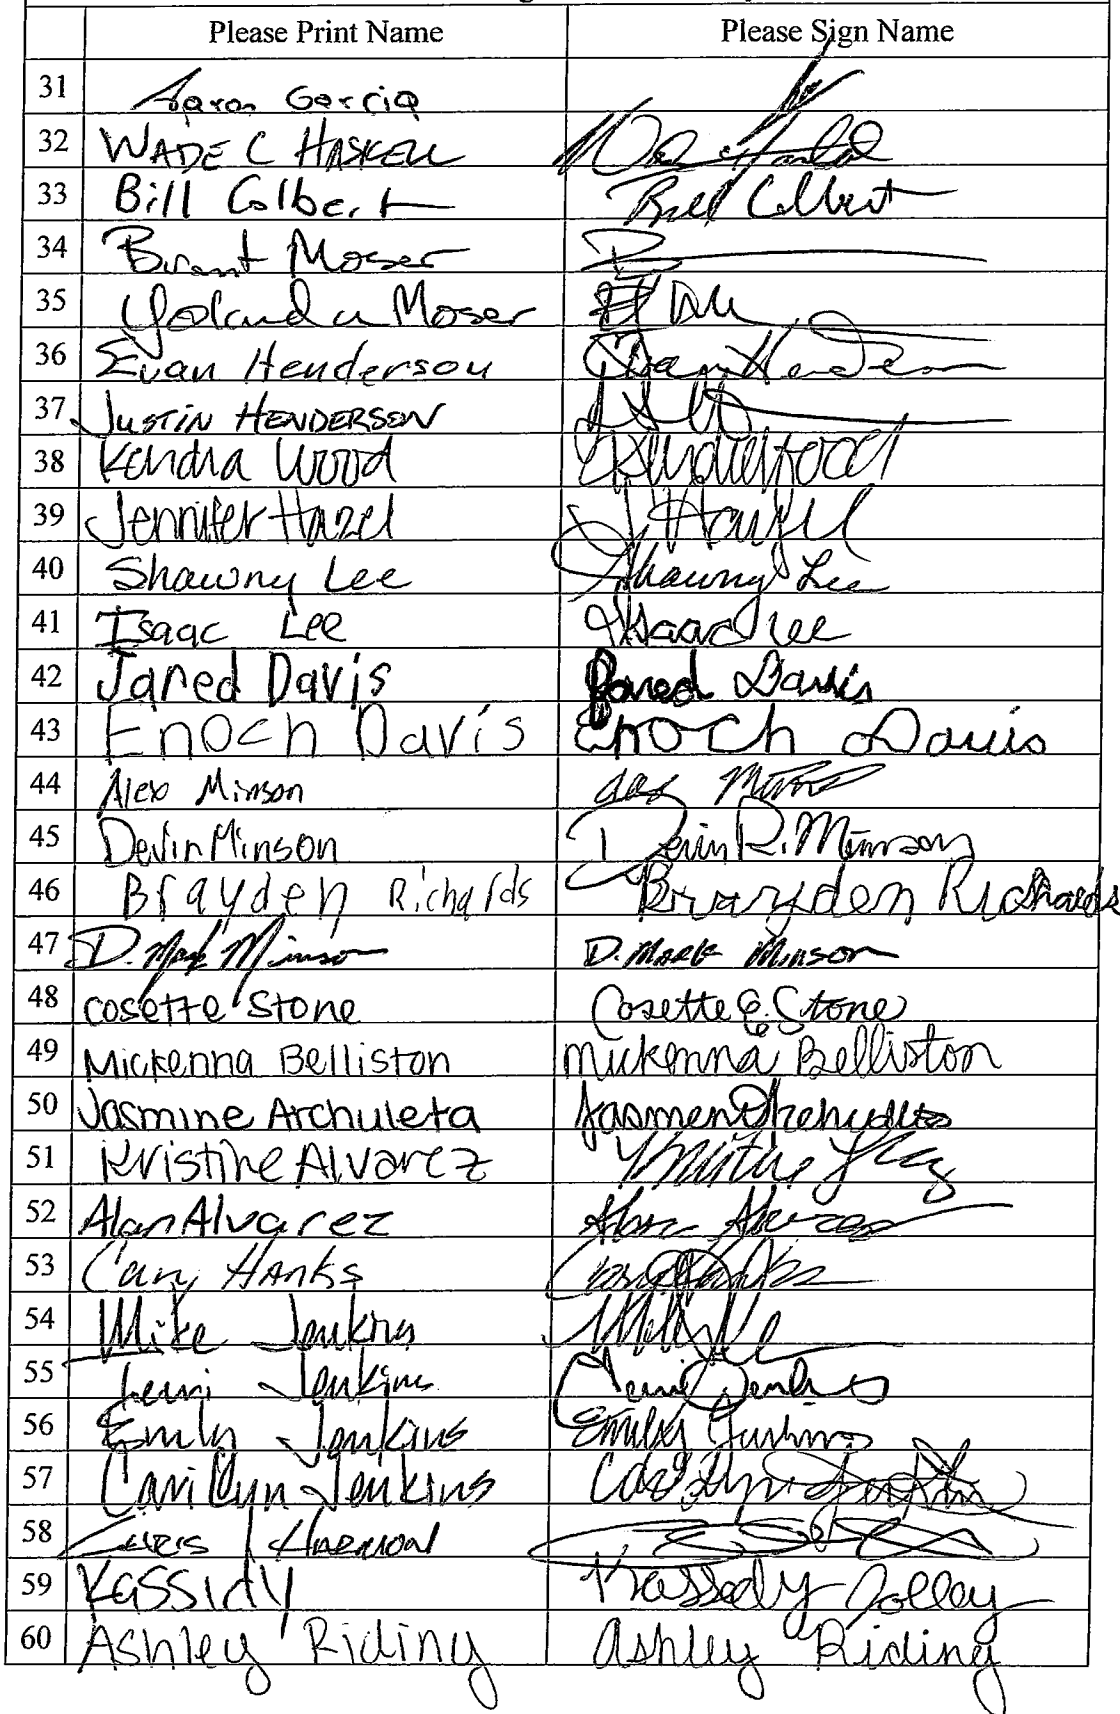 Please Print Name Please Sign Name
31 Aaron Garcia
32 WADE C HASKELL
33 Bill Colbert Bill Colbert
34 Brant Moser
35 Yolanda Moser
36 Evan Henderson Evan Henderson
37 JUSTIN HENDERSON
38 Kendra Wood Kendra Wood
39 Jennifer Hazel J Hazel
40 Shawny Lee Shawny Lee
41 Isaac Lee Isaac Lee
42 Jared Davis Jared Davis
43 Enoch Davis Enoch Davis
44 Alex Minson
45 Devin Minson Devin R. Minson
46 Brayden Richards Brayden Richards
47 D. Mark Minson D. Mark Minson
48 Cosette Stone Cosette E. Stone
49 Mickenna Belliston Mickenna Belliston
50 Jasmine Archuleta
51 Kristine Alvarez
52 Alan Alvarez Alan Alvarez
53 Cary HANKS Cary Hanks
54 Mike Jenkins
55 Jenkins Jenkins
56 Emily Jenkins Emily Jenkins
57 Carilyn Jenkins Carilyn Jenkins
58
59 Kassidy Kassedy Jolley
60 Ashley Riding Ashley Riding